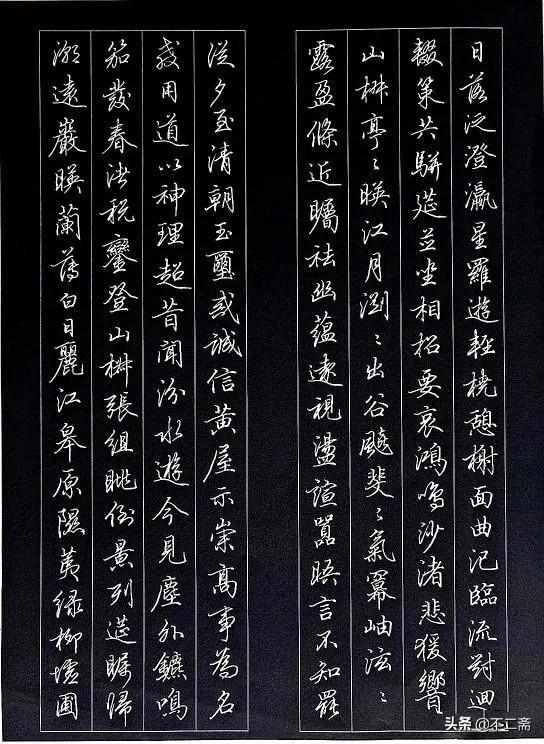 日落泛澄瀛星羅遊輕橈憩榭面曲汜臨流對迴
輟策共駢筵並坐相招要哀鴻鳴沙渚悲猨響
山椒亭〻暎江月瀏〻出谷飈斐〻氣冪岫泫〻
露盈條近矚祛幽蘊遠視盪諠囂晤言不知罷
從夕至清朝玉璽戒誠信黃屋示崇高事為名
教用道以神理超昔聞汾水遊今見塵外鑣鳴
笳發春渚稅鑾登山椒張組眺倒景列筵矚歸
潮遠巖暎蘭薄白日麗江皋原隰荑綠柳墟圃
头条 @不二斋